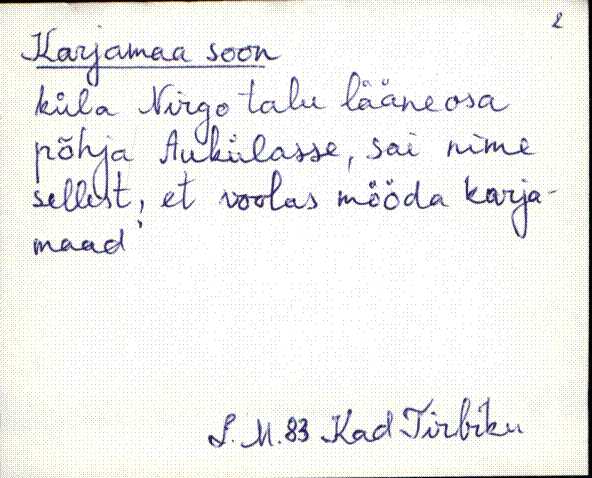 2
Karjamaa soon
küla Nirgo talu lääneosa
põhja Aukülasse, sai nime
sellest, et voolas mööda karja-
maad'
L. M. 83 Kad Tirbiku